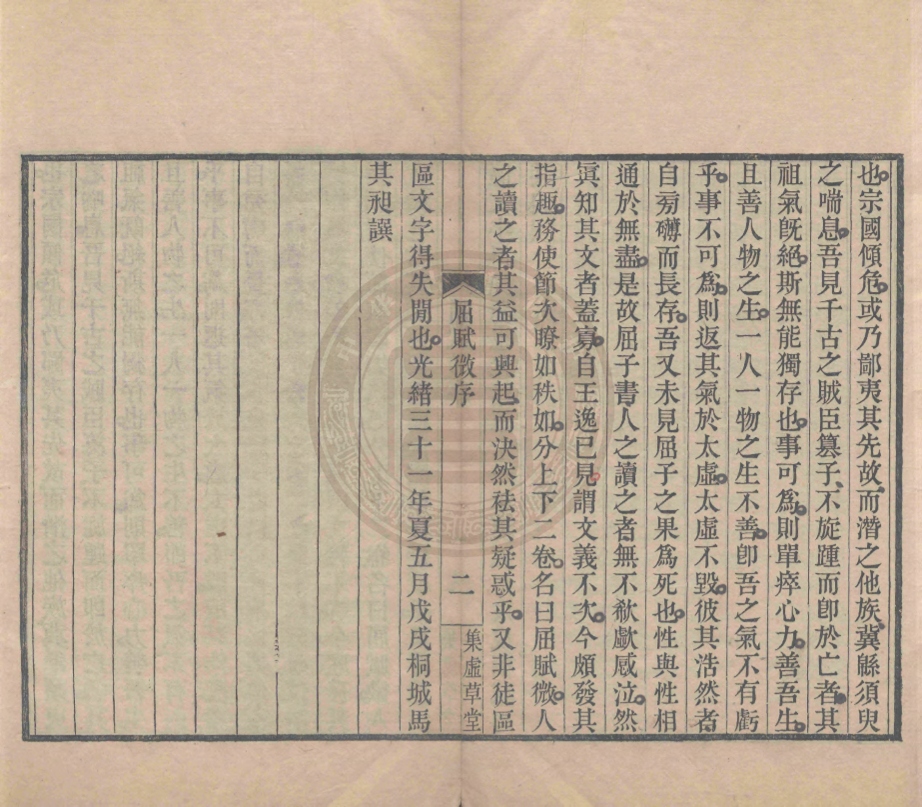 也宗國傾危或乃鄙夷其先故而潛之他族冀緜須臾
之喘息吾見千古之賊臣篡子不旋踵而卽於亡者其
祖氣旣絕斯無能獨存也事可爲則單瘁心力善吾生
且善人物之生一人一物之生不善卽吾之氣不有虧
乎事不可爲則返其氣於太虛太虛不毀彼其浩然者
自磅礴而長存吾又未見屈子之果爲死也性與性相
通於無盡是故屈子書人之讀之者無不欷歔感泣然
寘知其文者蓋寡自王逸已見謂文義不次今頗發其
指趣務使節次瞭如秩如分上下二卷名曰屈賦微人
之讀之者其益可興起而決然袪其疑惑乎又非徒區
屈賦微序
二
集虛草堂
區文字得失閒也光緒三十一年夏五月戊戌桐城馬
其昶譔